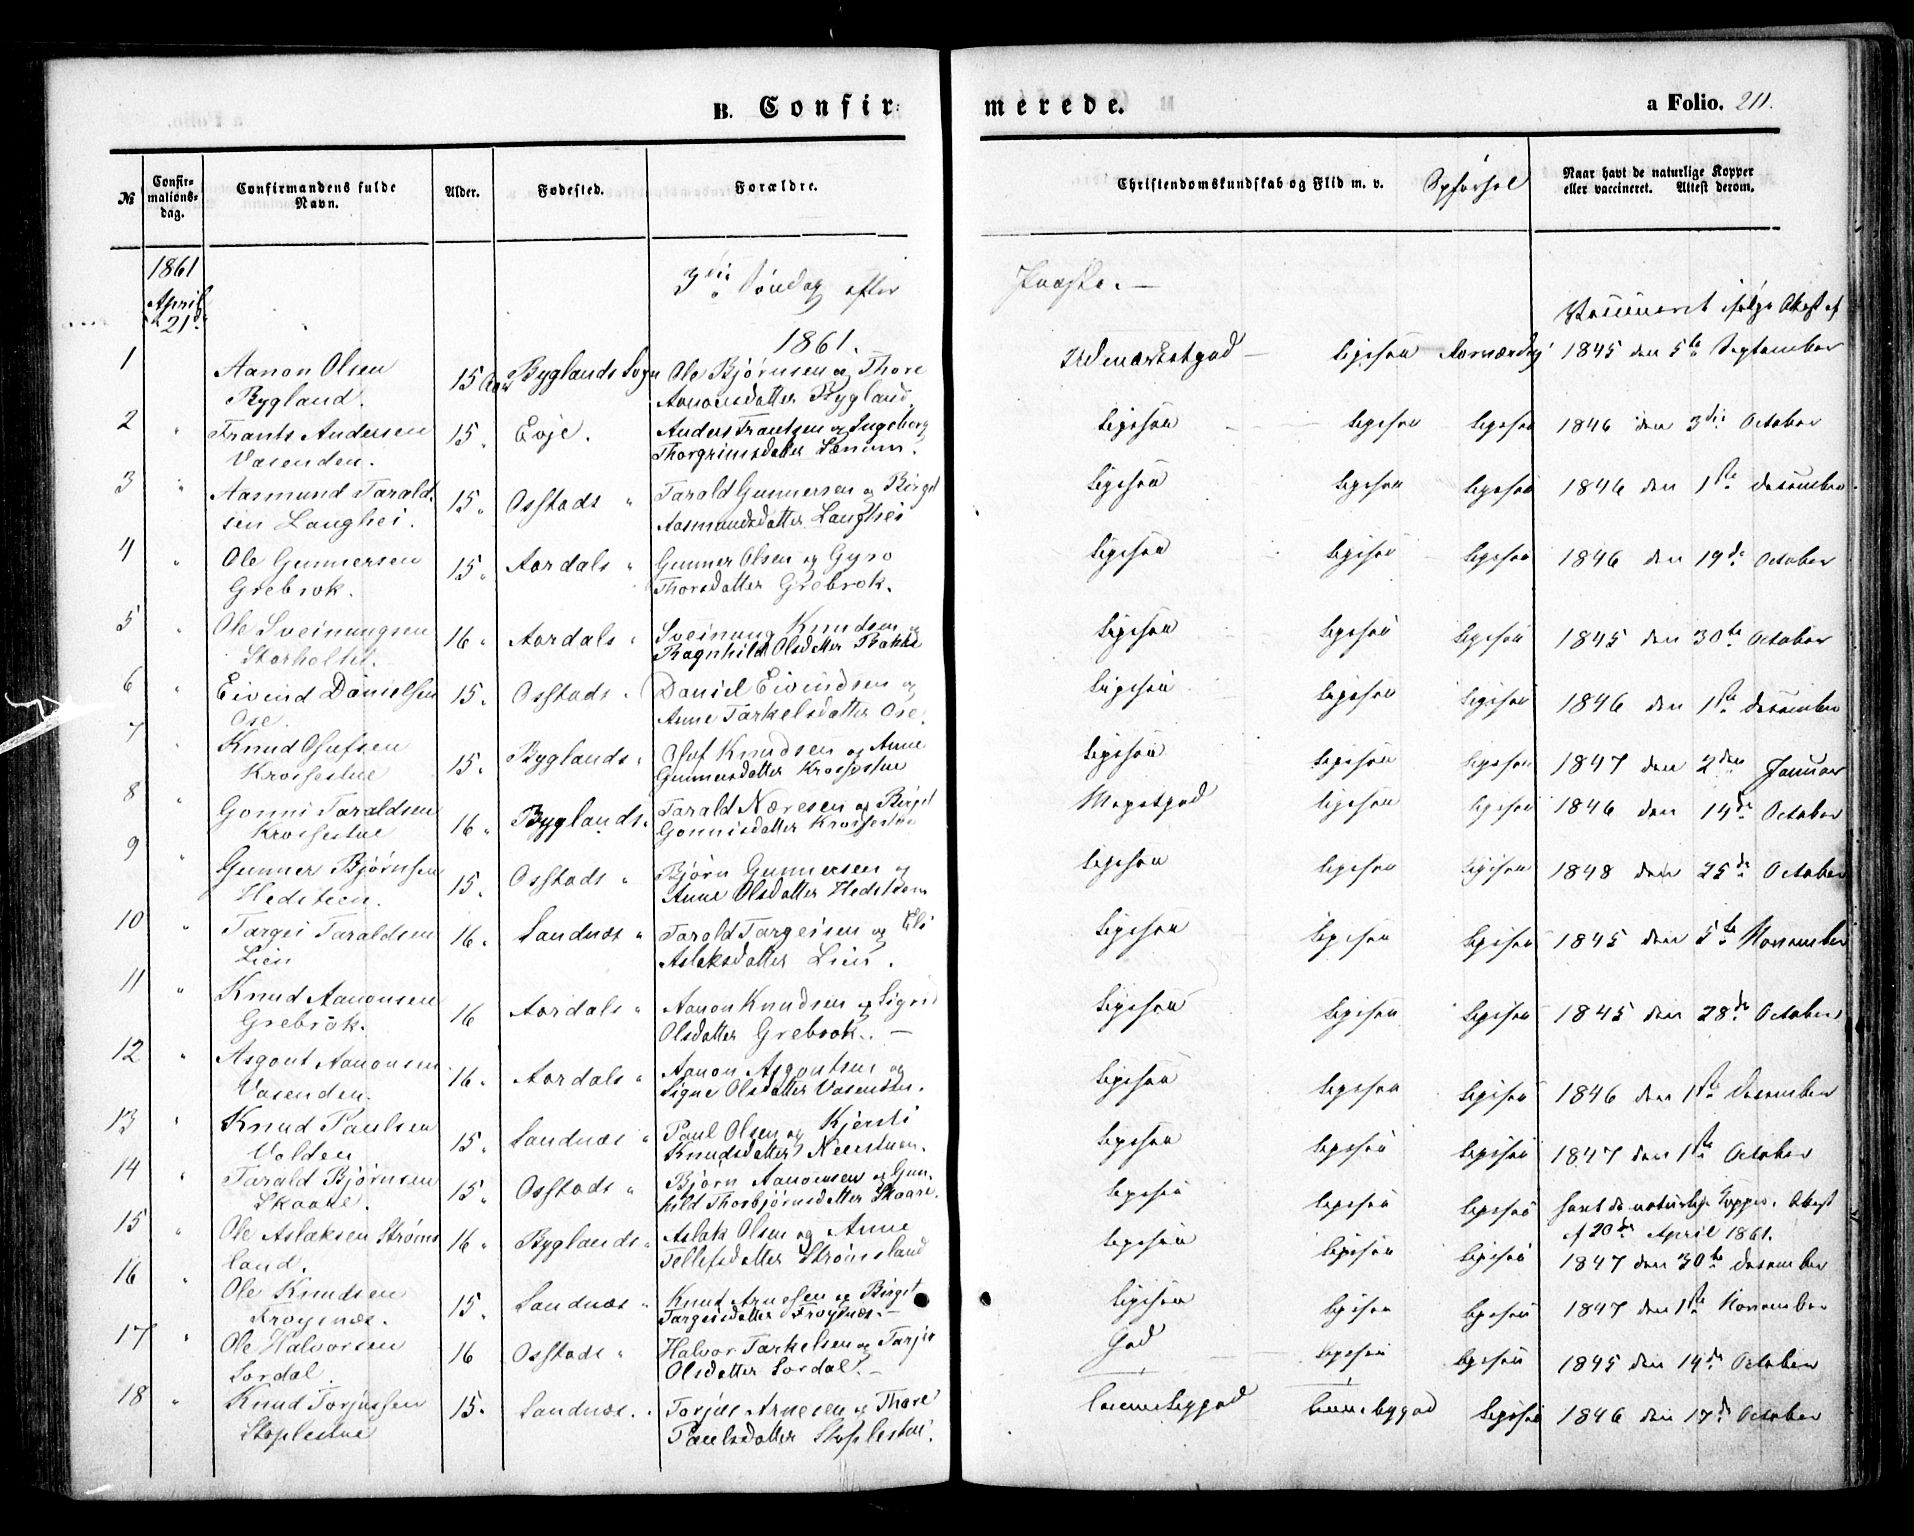 B. Confirmerede. a Folio. 211.
№ Confirmationsdag. Confirmandens fulde Navn. Alder. Fødested. Forældre. Christendomskundskab og Flid m. v. Opførsel Naar havt de naturlige Kopper eller vaccineret. Attest derom.
1861 April 21de 3die Søndag efter Paaske. 1861. Vaccineret ifølge Attest af
1 Aanon Olsen Bygland. 15 Aar Byglands Sogn Ole Bjørnsen og Thore Aanonsdatter Bygland. Udmærketgod ligesaa 1845 den 5te September
2 " Frants Andersen Vasenden. 15 " Evje. Anders Frantsen og Ingeborg Thorgrimsdatter ligesaa ligesaa ligesaa 1846 den 3die October
3 " Aasmund Taraldsen Langhei. 15 " Osstads " Tarald Gunnersen og Birgit Aasmundsdatter Langhei ligesaa ligesaa ligesaa 1846 den 1ste December
4 " Ole Gunnersen Grebrok. 15 " Aardals " Gunner Olsen og Gyro Thorsdatter Grebrok. ligesaa ligesaa ligesaa 1846 den 19de October
5 " Ole Sveinungsen Storholtet. 16 " Aardals " Sveinung Knudsen og Ragnhild Olsdatter Bakke ligesaa ligesaa ligesaa 1845 den 30te October
6 " Eivind Danielsen Ose. 15 " Osstads " Daniel Eivindsen og Anne Tarkelsdatter Ose. ligesaa ligesaa ligesaa 1846 den 1ste December
7 " Knud Olufsen Krossestue 15 " Byglands " Oluf Knudsen og Anne Gunnersdatter Krossestue ligesaa ligesaa ligesaa 1847 den 2den Januar
8 " Gonni Taraldsen Krossestue 16 " Byglands " Tarald Næresen og Birgit Gonnisdatter Krossestue Megetgod ligesaa ligesaa 1846 den 14de October
9 " Gunner Bjørnsen Hedsteen. 15 " Osstads " Bjørn Gunnersen og Anne Olsdatter Hedsteen ligesaa ligesaa ligesaa 1848 den 25de October
10 " Targei Taraldsen Lien 16 " Sandnæs " Tarald Targeisen og Eli Aslaksdatter Lien. ligesaa ligesaa ligesaa 1845 den 5te November
11 " Knud Aanonsen Grebrok. 16 Aardals " Aanon Knudsen og Sigrid Olsdatter Grebrok. — ligesaa ligesaa ligesaa 1845 den 28de October
12 " Asgout Aanonsen Vasenden. 16 " Aardals " Aanon Asgoutsen og Signe Olsdatter Vasenden. ligesaa ligesaa ligesaa 1846 den 1ste December
13 " Knud Paulsen Valden 15 " Sandnæs " Paul Olsen og Kjersti Knudsdatter ligesaa ligesaa ligesaa 1847 den 1ste October
14 " Tarald Bjørnsen Skaare. 15 " Osstads " Bjørn Aanonsen og Gunhild Thorbjørnsdatter Skaare. ligesaa ligesaa ligesaa havt de naturlige Kopper. Attest af 20de April 1861.
15 " Ole Aslaksen Strømsland. 16 " Byglands " Aslak Olsen og Anne Tellefsdatter Strømsland ligesaa ligesaa ligesaa 1847 den 30te December
16 " Ole Knudsen Frøysnæs. 15 " Sandnæs " Knud Arnesen og Birgit Targeisdatter Frøysnæs. — ligesaa ligesaa ligesaa 1847 den 1ste November
17 " Ole Halvorsen Lordal. 16 Osstads " Halvor Tarkelsen og Tarjer Olsdatter Lordal. — God ligesaa ligesaa 1845 den 14de October
18 " Knud Torjussen Stoplestue 15 " Sandnæs. Torjus Arnesen og Thore Paulsdatter Stoplestue. ligesaa 1846 den 17de October